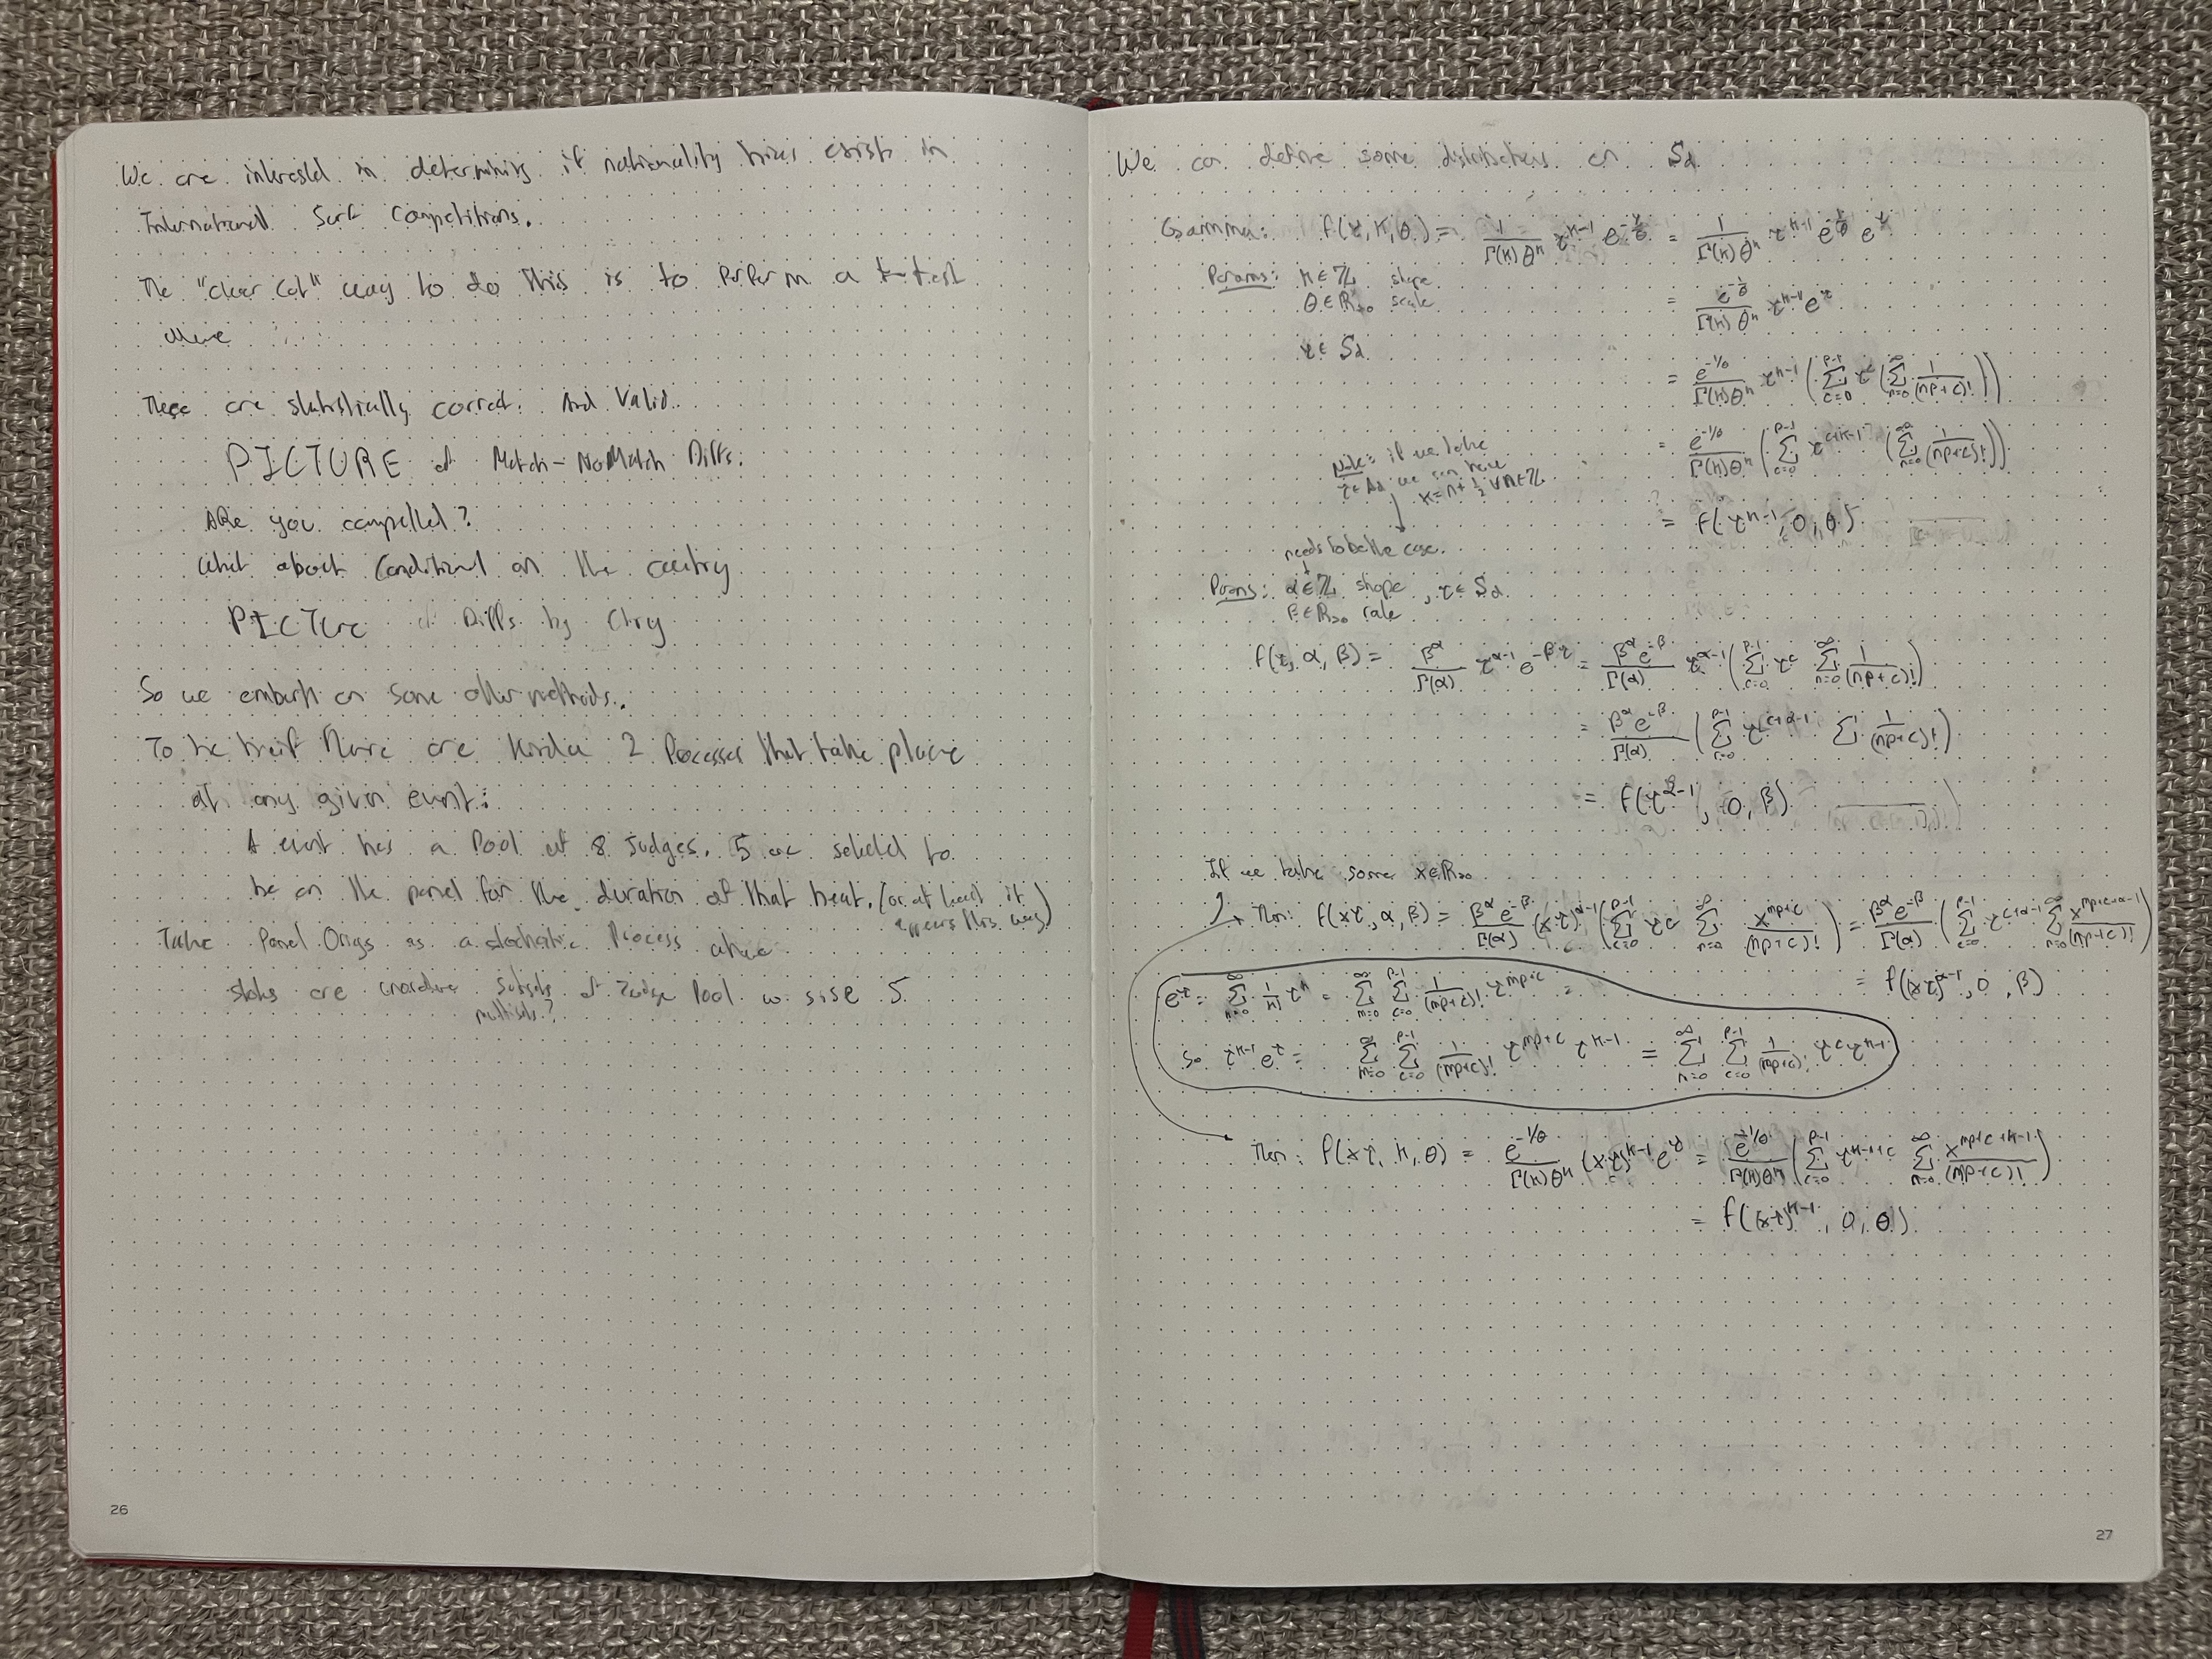 We are interested in determining if nationality bias exists in
International Surf Competitions.
The "clear cut" way to do this is to perform a t-test
where ...
These are statistically correct. And Valid.
PICTURE of Match - NoMatch Diffs.
Are you compelled?
What about Conditional on the country
PICTURE of Diffs by Ctry
So we embark on some other methods.
To be brief there are kinda 2 Processes that take place
at any given event:
A event has a Pool of 8 Judges, 5 are selected to
be on the panel for the duration of that heat. (or at least it
appears this way)
Take Panel Origs as a stochastic Process where
states are unordered subsets of Judge Pool w size 5
multisets?
26
We can define some distributions on S
Gamma: f(τ, k, θ) = 1/(Γ(k)θ^k) τ^(k-1) e^(-τ/θ) =
Params: k ∈ ℤ shape
θ ∈ ℝ>0 scale
τ ∈ S
= e^(-1/θ)/(Γ(k)θ^k) τ^(k-1) e^τ
= e^(-1/θ)/(Γ(k)θ^k) τ^(k-1) (Σ_{c=0}^{p-1} τ^c (Σ_{n=0}^∞ 1/(np+c)!))
= e^(-1/θ)/(Γ(k)θ^k) (Σ_{c=0}^{p-1} τ^(c+k-1) (Σ_{n=0}^∞ 1/(np+c)!))
= f(τ^(k-1), 0, θ)
Note: if we take
we can have
needs to be the case.
f(τ, α, β) = β^α/Γ(α) τ^(α-1) e^(-βτ) = β^α e^(-β)/Γ(α) τ^(α-1) (Σ_{c=0}^{p-1} τ^c Σ_{n=0}^∞ 1/(np+c)!)
Params: α ∈ ℤ shape, τ ∈ S
β ∈ ℝ>0 rate
= β^α e^(-β)/Γ(α) (Σ_{c=0}^{p-1} τ^(c+α-1) Σ 1/(np+c)!)
= f(τ^(α-1), 0, β)
If we take some x ∈ ℝ>0
Then: f(xτ, α, β) = β^α e^(-β)/Γ(α) (xτ)^(α-1) (Σ_{c=0}^{p-1} τ^c Σ_{n=0}^∞ x^(np+c)/(np+c)!) = β^α e^(-β)/Γ(α) (Σ_{c=0}^{p-1} τ^(c+α-1) Σ_{n=0}^∞ x^(np+c+α-1)/(np+c)!)
= f((xτ)^(α-1), 0, β)
e^τ = Σ_{n=0}^∞ 1/n! τ^n = Σ_{n=0}^∞ Σ_{c=0}^{p-1} 1/(np+c)! τ^(np+c) =
So τ^(k-1) e^τ = Σ_{n=0}^∞ Σ_{c=0}^{p-1} 1/(np+c)! τ^(np+c) τ^(k-1) = Σ_{n=0}^∞ Σ_{c=0}^{p-1} 1/(np+c)! τ^c τ^(k-1)
Then: f(xτ, k, θ) = e^(-1/θ)/(Γ(k)θ^k) (xτ)^(k-1) e^τ = e^(-1/θ)/(Γ(k)θ^k) (Σ_{c=0}^{p-1} τ^(k-1+c) Σ_{n=0}^∞ x^(np+c+k-1)/(np+c)!)
= f((xτ)^(k-1), 0, θ)
27